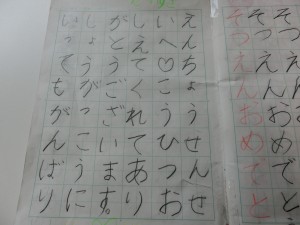 そつえんおめでと
そつえんおめでと
えんちょうせんせ
いへ♡こうひつお
しえてくれてあり
がとうございます。
しょうがっこうに
いってもがんばり